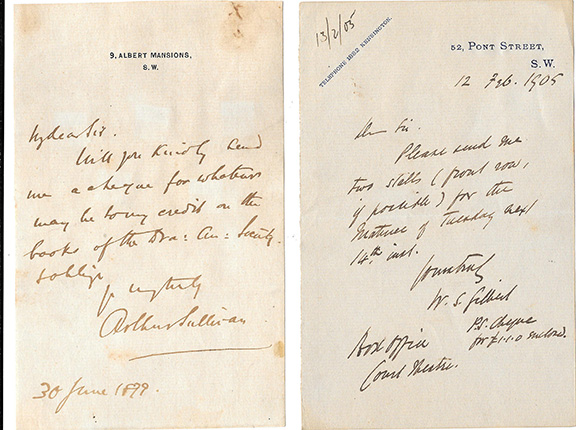 9, ALBERT MANSIONS,
S.W.
My dear Sir.
Will you kindly send
me a cheque for whatever
may be to my credit on the
books of the Dra: Au: Society.
& oblige
yrs truly
Arthur Sullivan
30 June
13/2/05
TELEPHONE KENSINGTON.
52, PONT STREET,
S.W.
12 Feb. 1905
Dear Sir.
Please send me
two stalls (front row,
if possible) for the
Matinee of Tuesday next
14th inst.
Yours truly
W. S. Gilbert
P.S. Cheque
for £1.1.0 enclosed.
Box Office
Court Theatre.